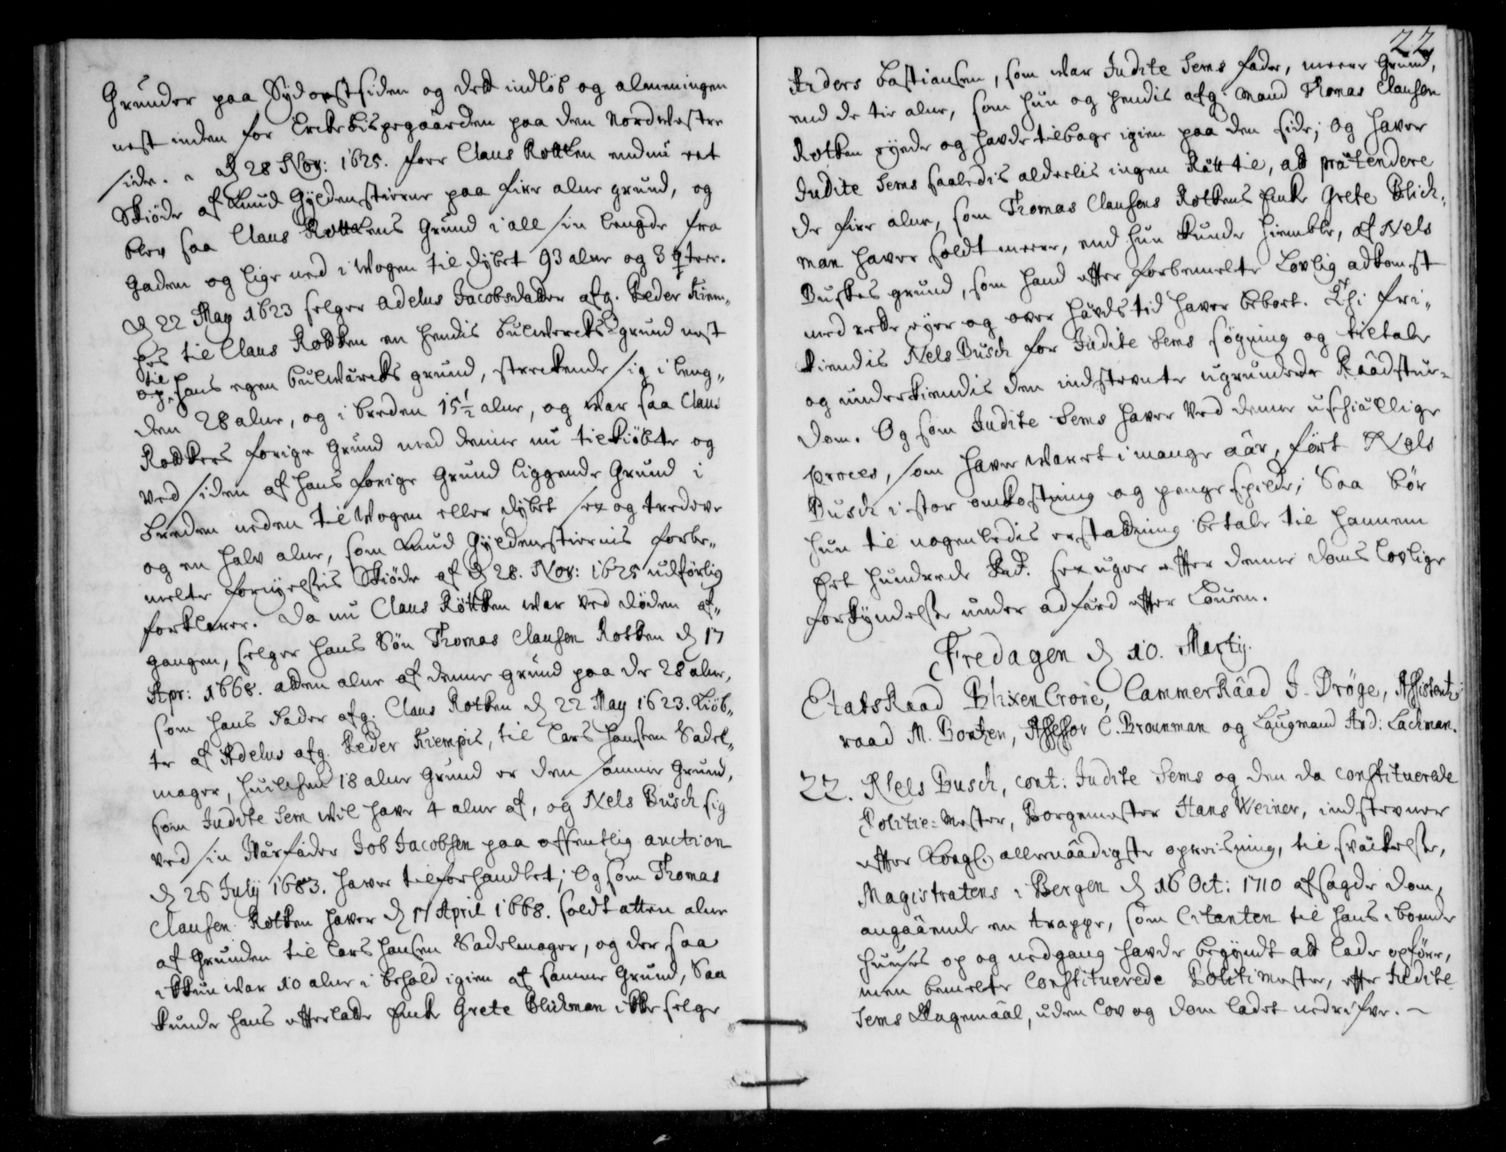 Grunder paa Sydostsiden og det indløb og almeningen
nest inden for Erckebispegaarden paa den Nordvestre
side. d 28 Nov: 1625. faar Claus Rotken endnu ret
Skiøde af Knud Gyldenstierne paa fire alne grund, og
blev saa Claus Rotkens Grund i all sin lengde fra
Gaden og lige ned i Wogen til dybet 93 alne og 3 qteer.
d 22 May 1623 selger Adelus Jacobsdatter afg. Peder Kiem-
pes til Claus Rotken en hendis bulwercks grund nest
til
op hans egen bulwärcks grund, streckende sig i leng-
den 28 alne, og i breden 15½ alne, og war saa Claus
Rotkens forige Grund med denne nu tilkiøbte og
ved siden af hans forige Grund liggende Grund i
breden neden til Wogen eller dybet sex og tredeve
og en halv alne, som Knud Gyldenstiernis forbe-
melte fornyelsis Skiøde af d 28. Nov: 1625 udførlig
forklarer. Da nu Claus Rotken war ved døden af-
gangen, selger hans Søn Thomas Clausen Rotken d 17
Apr: 1668. atten alne af denne grund paa de 28 alne,
som hans Fader afg. Claus Rotken d 22 May 1623. kiøb-
te af Adelus afg. Peder Kiempis, til Lars Hansen Sadel-
mager, huilchen 18 alne Grund er den samme Grund,
som Judite Sem wil have 4 alne af, og Niels Busch sig
ved sin Wärfader Job Jacobsen paa offentlig auction
d 26 July 1683. haver tilforhandlet; Og som Thomas
Clausen Rotken haver d 17 April 1668. soldt atten alne
af Grunden til Lars Hansen Sadelmager, og der saa
ikkun war 10 alne i behold igien af samme Grund, Saa
kunde hans efterlatte Enke Grete Blickman ikke selge
22
Anders Bastiansen, som war Judite Sems fader, meere Grund,
end de tie alne, som hun og hendis afg. Mand Thomas Clausen
Rotken eyede og havde tilbage igien paa den side; Og haver
Judite Sems saaledis alderlis ingen Rätt til, at prätendere
de fire alne, som Thomas Clausens Rotkens Enke Grete Blick-
man haver soldt meere, end hun kunde hiemble, af Nels
Buskes grund, som hand efter forbemelte Lovlig adkomst
med rette eyer og over hävds tid haver beboet. Thi fri-
kiendis Nels Busch for Judite Sems søgning og tiltale
og underkiendis den indstevnte ugrundede Raadstue-
dom. Og som Judite Sems haver ved denne uschiällige
proces, som haver waret i mange aar, ført Nels
Busch i stor omkostning og penge spilde; Saa bør
hun til nogenledis erstatning betale til hannem
Et hundrede Rd. sex uger efter denne doms lovlige
forkyndelse under adfärd efter Louen.
Fredagen d 10. Martij.
EtatsRaad Blixencrone, CammerRaad J. Dröge, Assistentz-
raad M. Bortzen, Assessor C. Braunman og Laugmand And: Lachman.
22. Niels Busch, cont: Judite Sems og den da constituerede
Politie-Mester, Borgemester Hans Weiner, indstevner
efter Kongl. allernaadigste opreisning, til svækelse,
Magistratens i Bergen d 16 Oct: 1710 afsagde dom,
angaaende en trappe, som Citanten til hans iboende
Huuses op og nedgang havde begyndt at lade opføre,
men bemelte Constituerede Politimester, efter Judite
Sems Klagemaal, uden Lov og dom ladet nedrifve.